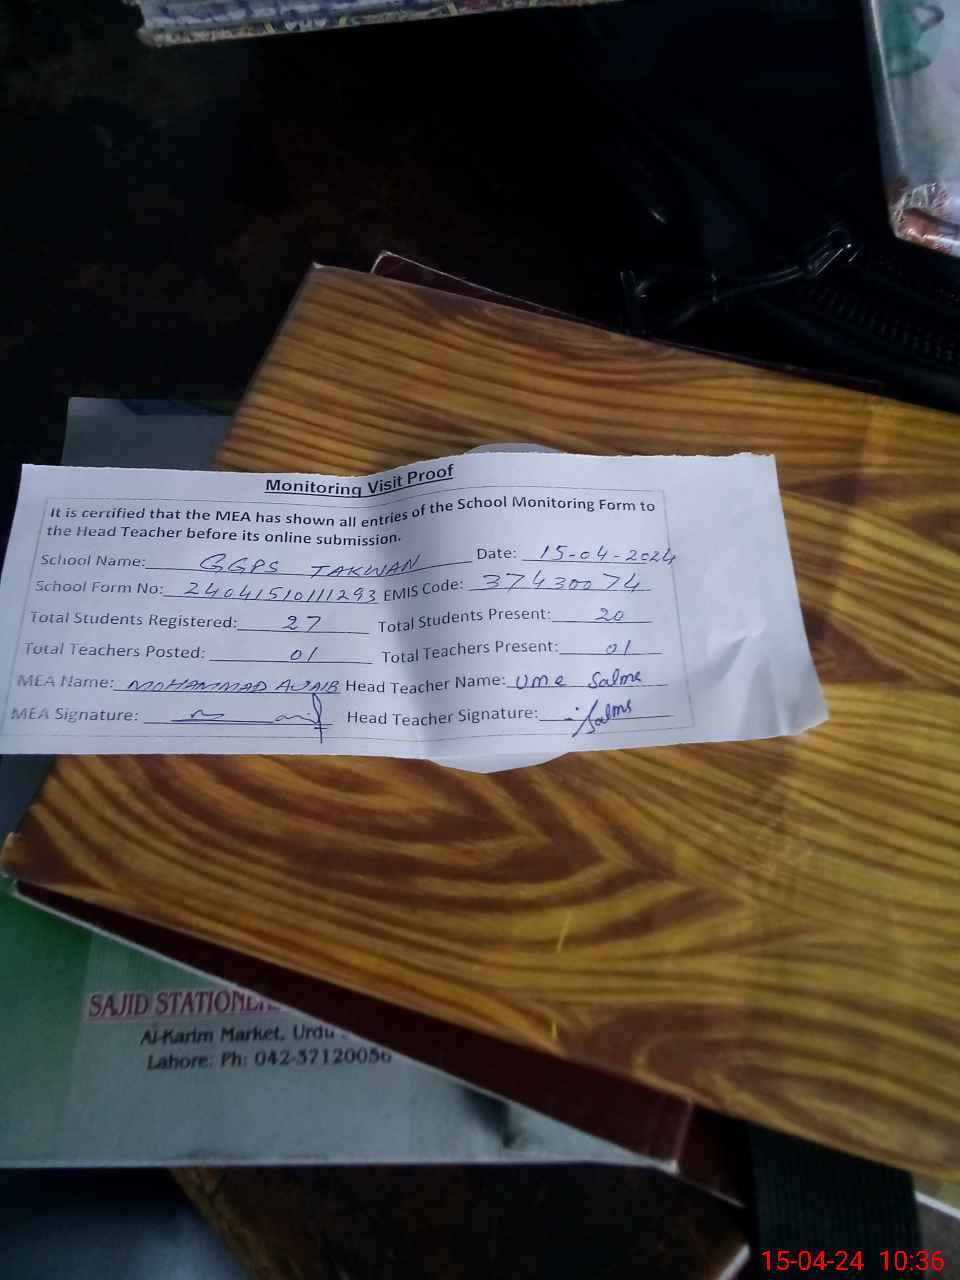 Monitoring Visit Proof
It is certified that the MEA has shown all entries of the School Monitoring Form to
the Head Teacher before its online submission.
School Name: GGPS TAKWAN Date: 15-04-2024
School Form No: 24041510111293 EMIS Code: 37430074
Total Students Registered: 27 Total Students Present: 20
Total Teachers Posted: 01 Total Teachers Present: 01
MEA Name: MOHAMMAD AJAIB Head Teacher Name: Ume Salme
MEA Signature: Head Teacher Signature: Salms
SAJID
Al-Karim Market, Urdu
Lahore: Ph: 042-37120056
15-04-24 10:36